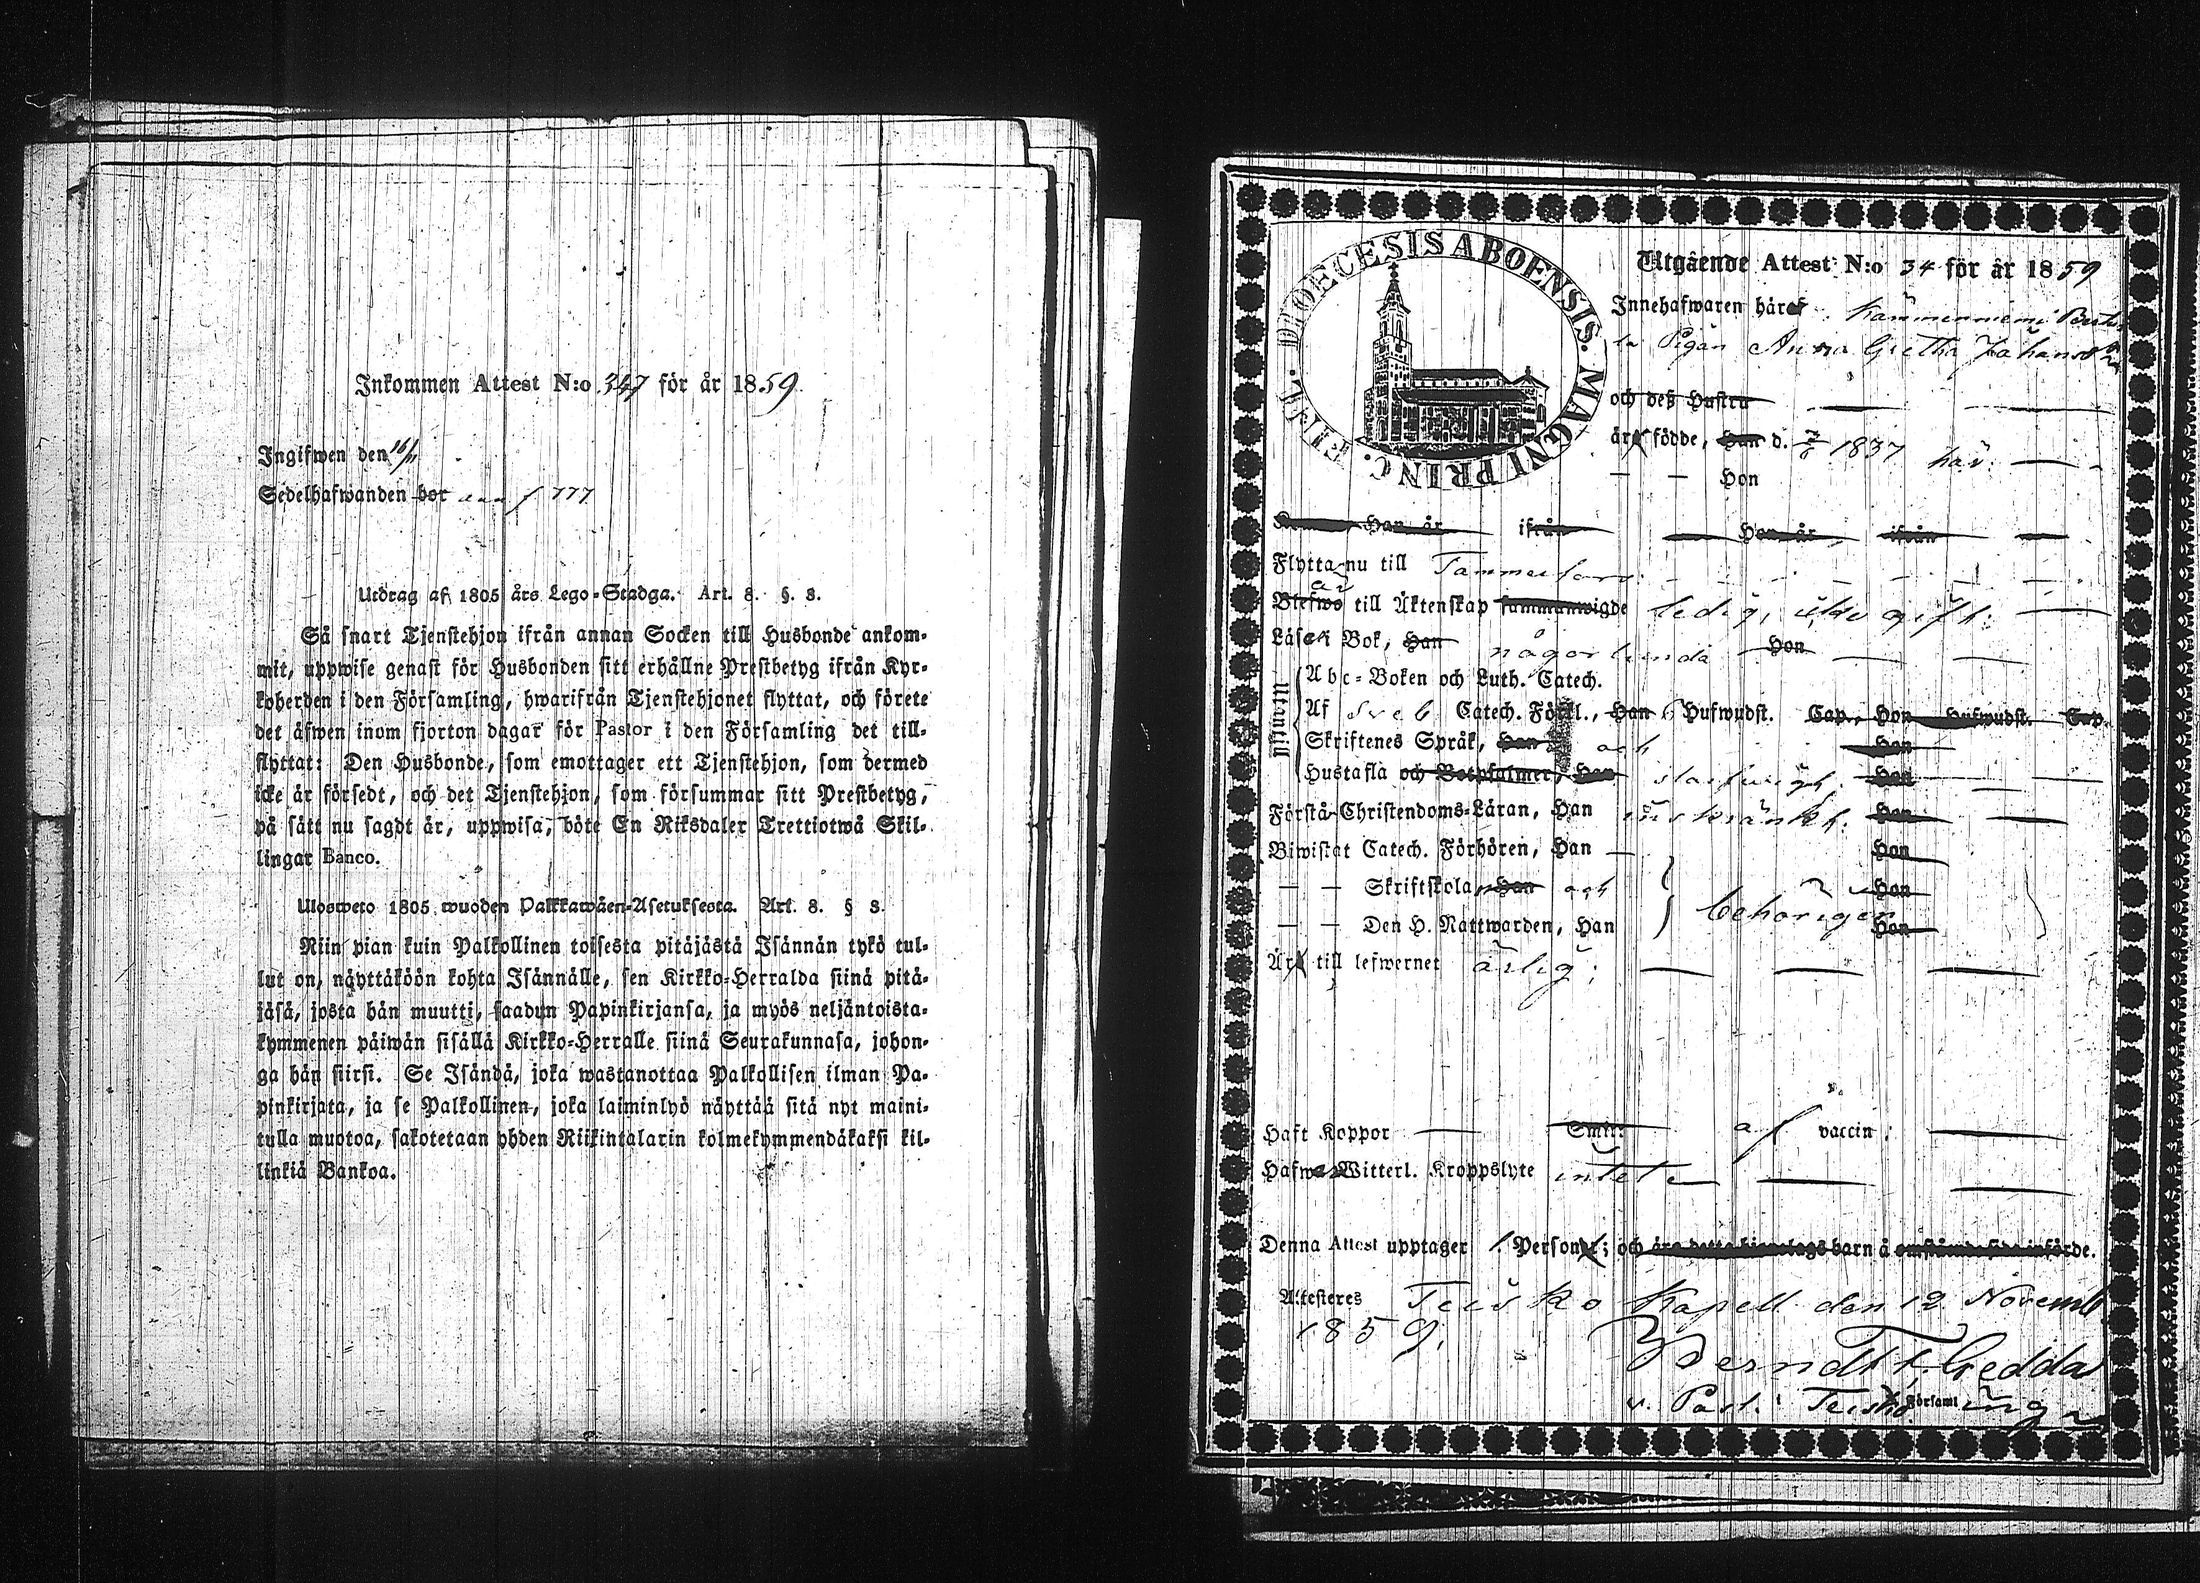 Inkommen Attest N:o 347 för år 1859
Ingifwen den 16/11
Sedelhafwanden bor ann f 777
Utdrag af 1805 års Lego-Stadga. Art. 8. §. 8.
Så snart Tjenstehjon ifrån annan Socken till Husbonde ankom-
mit, uppwise genast för Husbonden sitt erhållne Prestbetyg ifrån Kyr-
koherden i den Församling, hwarifrån Tjenstehjonet flyttat, och förete
det äfwen inom fjorton dagar för Pastor i den Församling det till-
flyttat: Den Husbonde, som emottager ett Tjenstehjon, som dermed
icke är försedt, och det Tjenstehjon, som försummar sitt Prestbetyg,
på sätt nu sagdt är, uppwisa, böte En Riksdaler Trettiotwå Skil-
lingar Banco.
Ulosweto 1805 wuoden Palkkawäen-Asetuksesta. Art. 8. § 8.
Niin pian kuin Palkollinen toisesta pitäjästä Isännän tykö tul-
lut on, näyttäköön kohta Isännälle, sen Kirkko-Herralda siinä pitä-
jäsä, josta hän muutti, saadun Papinkirjansa, ja myös neljäntoista-
kymmenen päiwän sisällä Kirkko-Herralle siinä Seurakunnasa, johon-
ga hän siirsi. Se Isändä, joka wastanottaa Palkollisen ilman Pa-
pinkirjata, ja se Palkollinen, joka laiminlyö näyttää sitä nyt maini-
tulla muotoa, sakotetaan yhden Riikintalarin kolmekymmendäkaksi kil-
linkiä Bankoa.
DIOECESIS ABOENSIS. MAGNI PRINC. FINL.
Utgående Attest N:o 34 för år 1859
Innehafwaren häraf Kämmenniemi
Pigan Anna Gretha Johansd
och deß Hustru
är födde, Han d. 1837 här.
— — Hon
Han är ifrån Hon är ifrån
Flytta nu till Tammerfors
är
Blefwo till Äktenskap sammanwigde ledig, gift.
Läse i Bok, Han någorlunda Hon
Utantill
Abc-Boken och Luth. Catech.
Af Sveb Catech. Förkl., Han 6 Hufwudst. Cap., Hon Hufwudst. Cap.
Skriftenes Språk, Han och Hon
Hustafla och Botpsalmer, Han Hon
Förstå Christendoms-Läran, Han inskränkt. Hon
Biwistat Catech. Förhören, Han — Hon
— — Skriftskola, Han och Hon
— — Den H. Nattwarden, Han behörigen Hon
Är till lefwernet ärlig;
Haft Koppor Smitt: af vaccin:
Hafwa Witterl. Kroppslyte intet
Denna Attest upptager 1. Person; och äro detta hjonelags barn å omstående sida införde.
Attesteres Teisko Kapell den 12 Novemb
1859.
Berndt F. Gedda
v. Past. i Teisko Församling